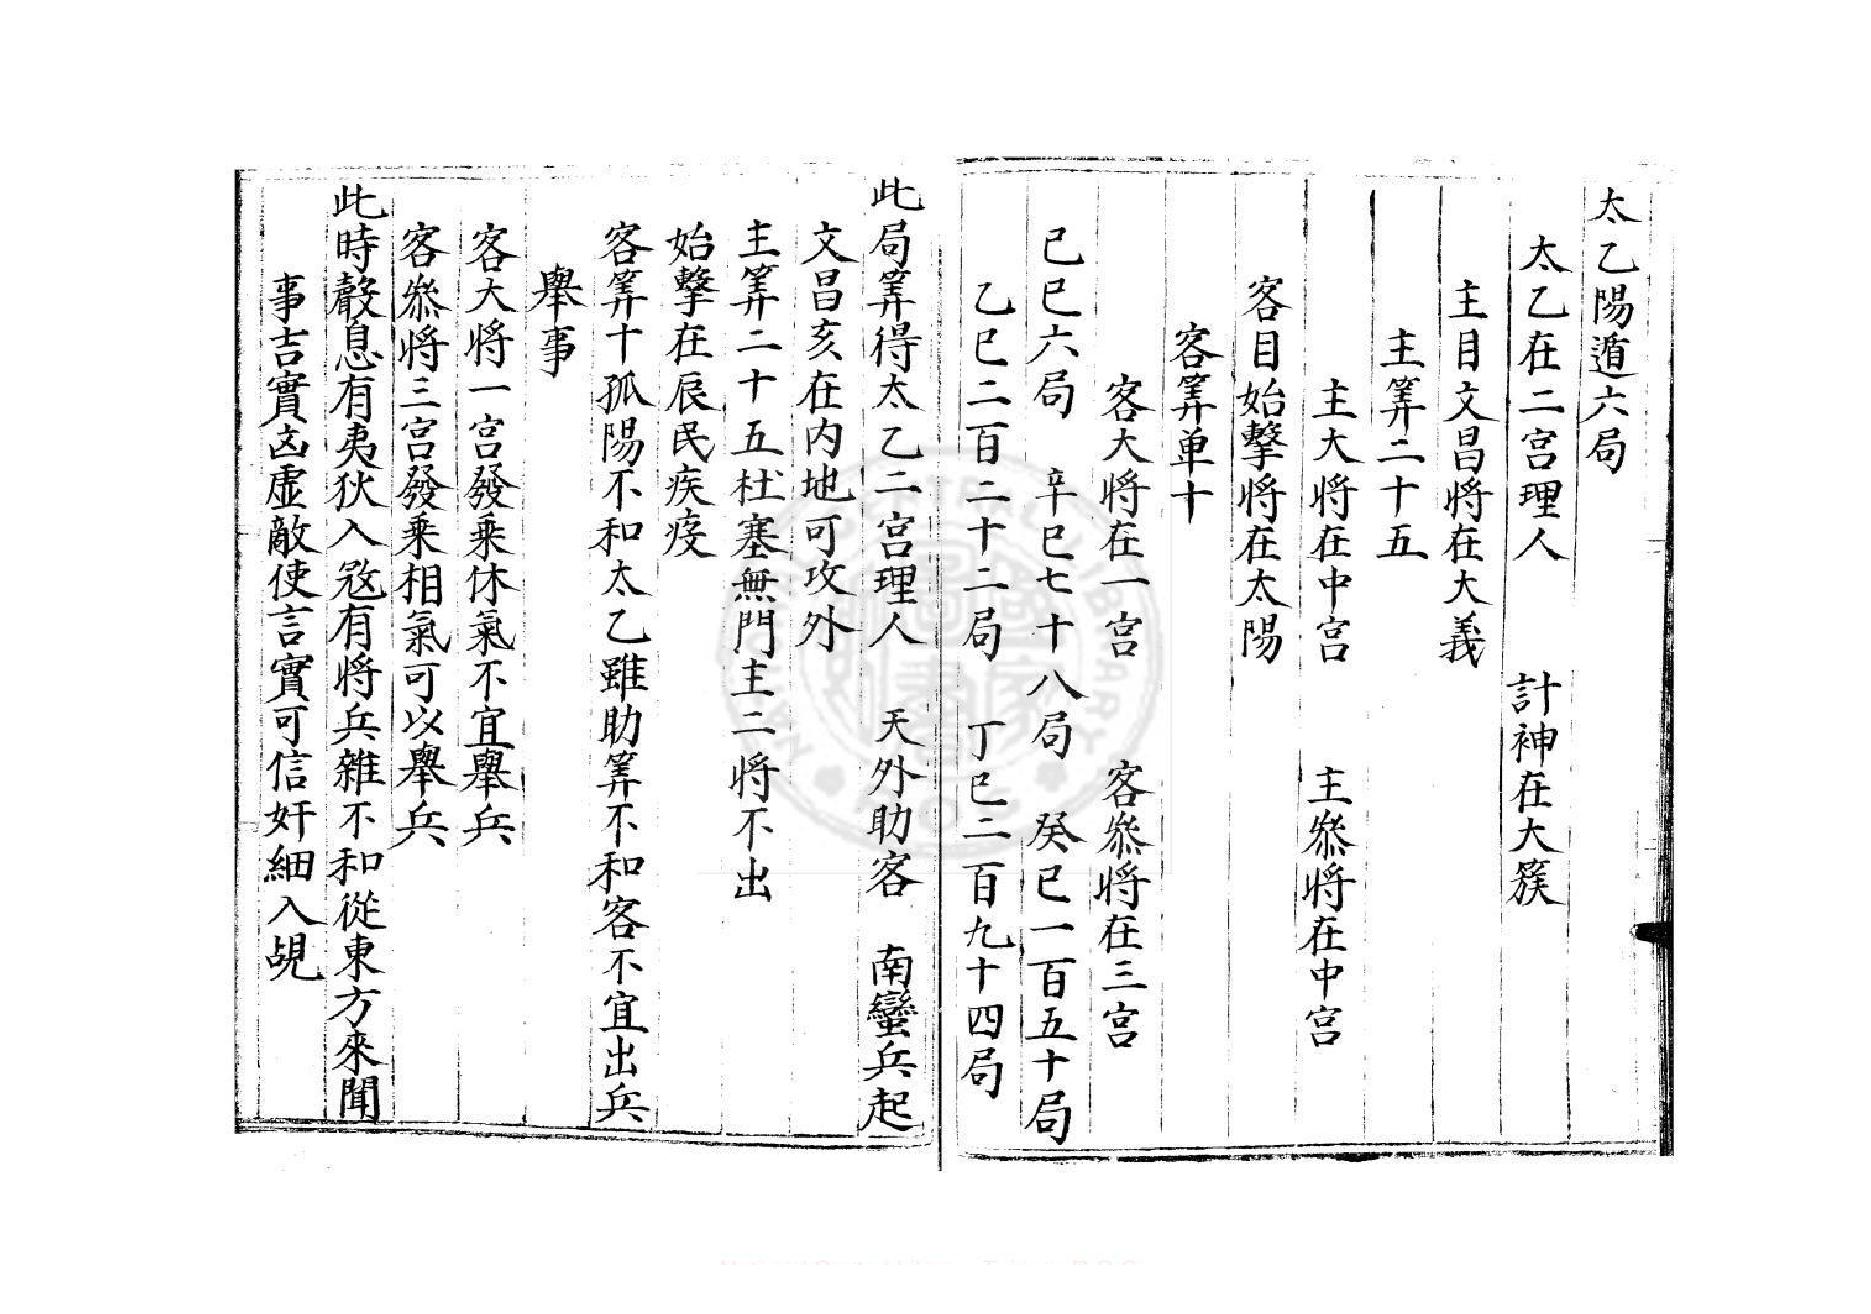 太乙陽遁六局
太乙在二宮理人　計神在大簇
主目文昌將在大義
主筭二十五
主大將在中宮　主叅將在中宮
客目始擊將在太陽
客筭单十
客大將在一宮　客叅將在三宮
己巳六局　辛巳七十八局　癸巳一百五十局
乙巳二百二十二局　丁巳二百九十四局
此局筭得太乙二宮理人　天外助客　南蠻兵起
文昌亥在内地可攻外
主筭二十五杜塞無門主二將不出
始擊在辰民疾疫
客筭十孤陽不和太乙雖助筭不和客不宜出兵
舉事
客大將一宮發乘休氣不宜舉兵
客叅將三宮發乘相氣可以舉兵
此時聲息有夷狄入宼有將兵雜不和從東方來聞
事吉實凶虛敵使言實可信奸細入覘